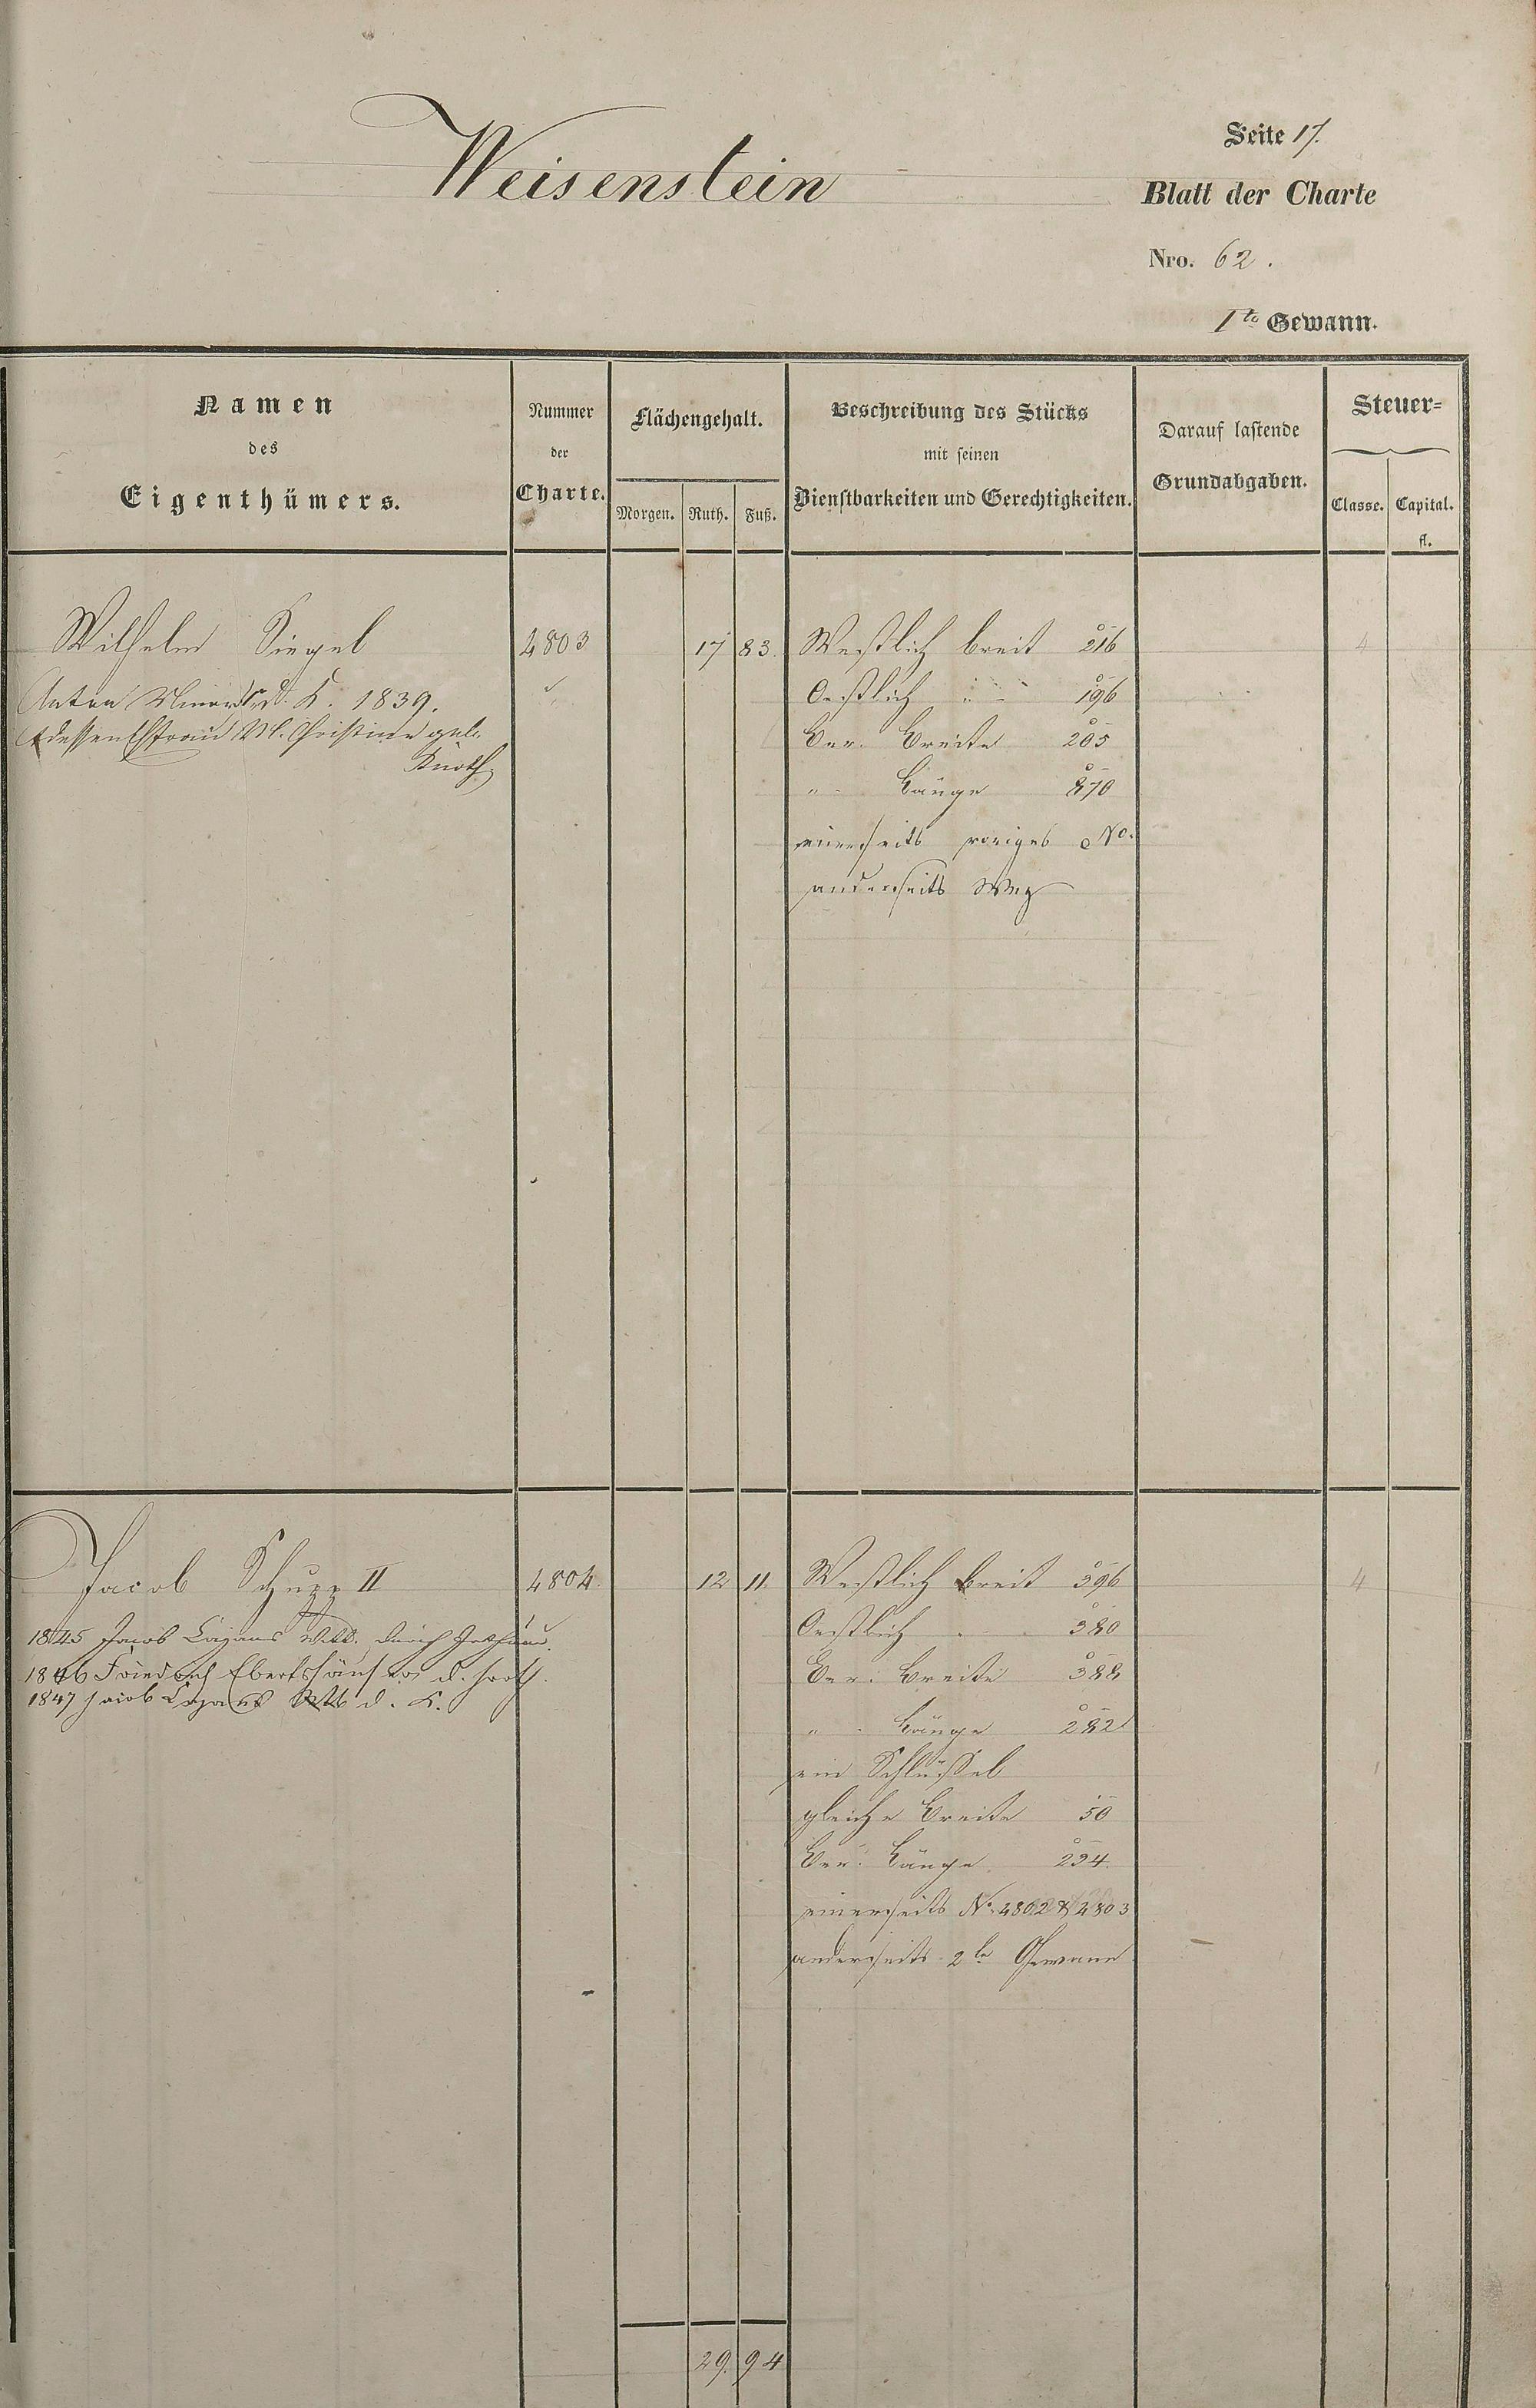 Weisenstein
Seite 17.
Blatt der Charte
Nro. 62.
I te Gewann.
Namen
des
Eigenthümers.
Nummer
der
Charte.
Flächengehalt.
Morgen. Ruth. Fuß.
Beschreibung des Stücks
mit seinen
Dienstbarkeiten und Gerechtigkeiten.
Darauf lastende
Grundabgaben.
Steuer-
Classe. Capital.
fl.
Wilhelm Siegel 4803 17 83. Westlich breit 216 4
Anton d. K. 1839. Oestlich " 196
dessen Ehefrau Christine geb. Ber. Breite 205
Knoth " Länge 870
einerseits voriges No.
anderseits Weg
Jacob Schupp II 4804. 12 11. Westlich breit 396 4
1845 Jacob durch Oestlich 380
1846 Friedrich Ebertshäuser d. Ber. Breite 388
1847 Jacob d. K.
" Länge 282
ein Schlüssel
gleiche Breite 50
Ber. Länge 234.
einerseits No. 4802 & 4803
anderseits 2te Gewann
29. 94